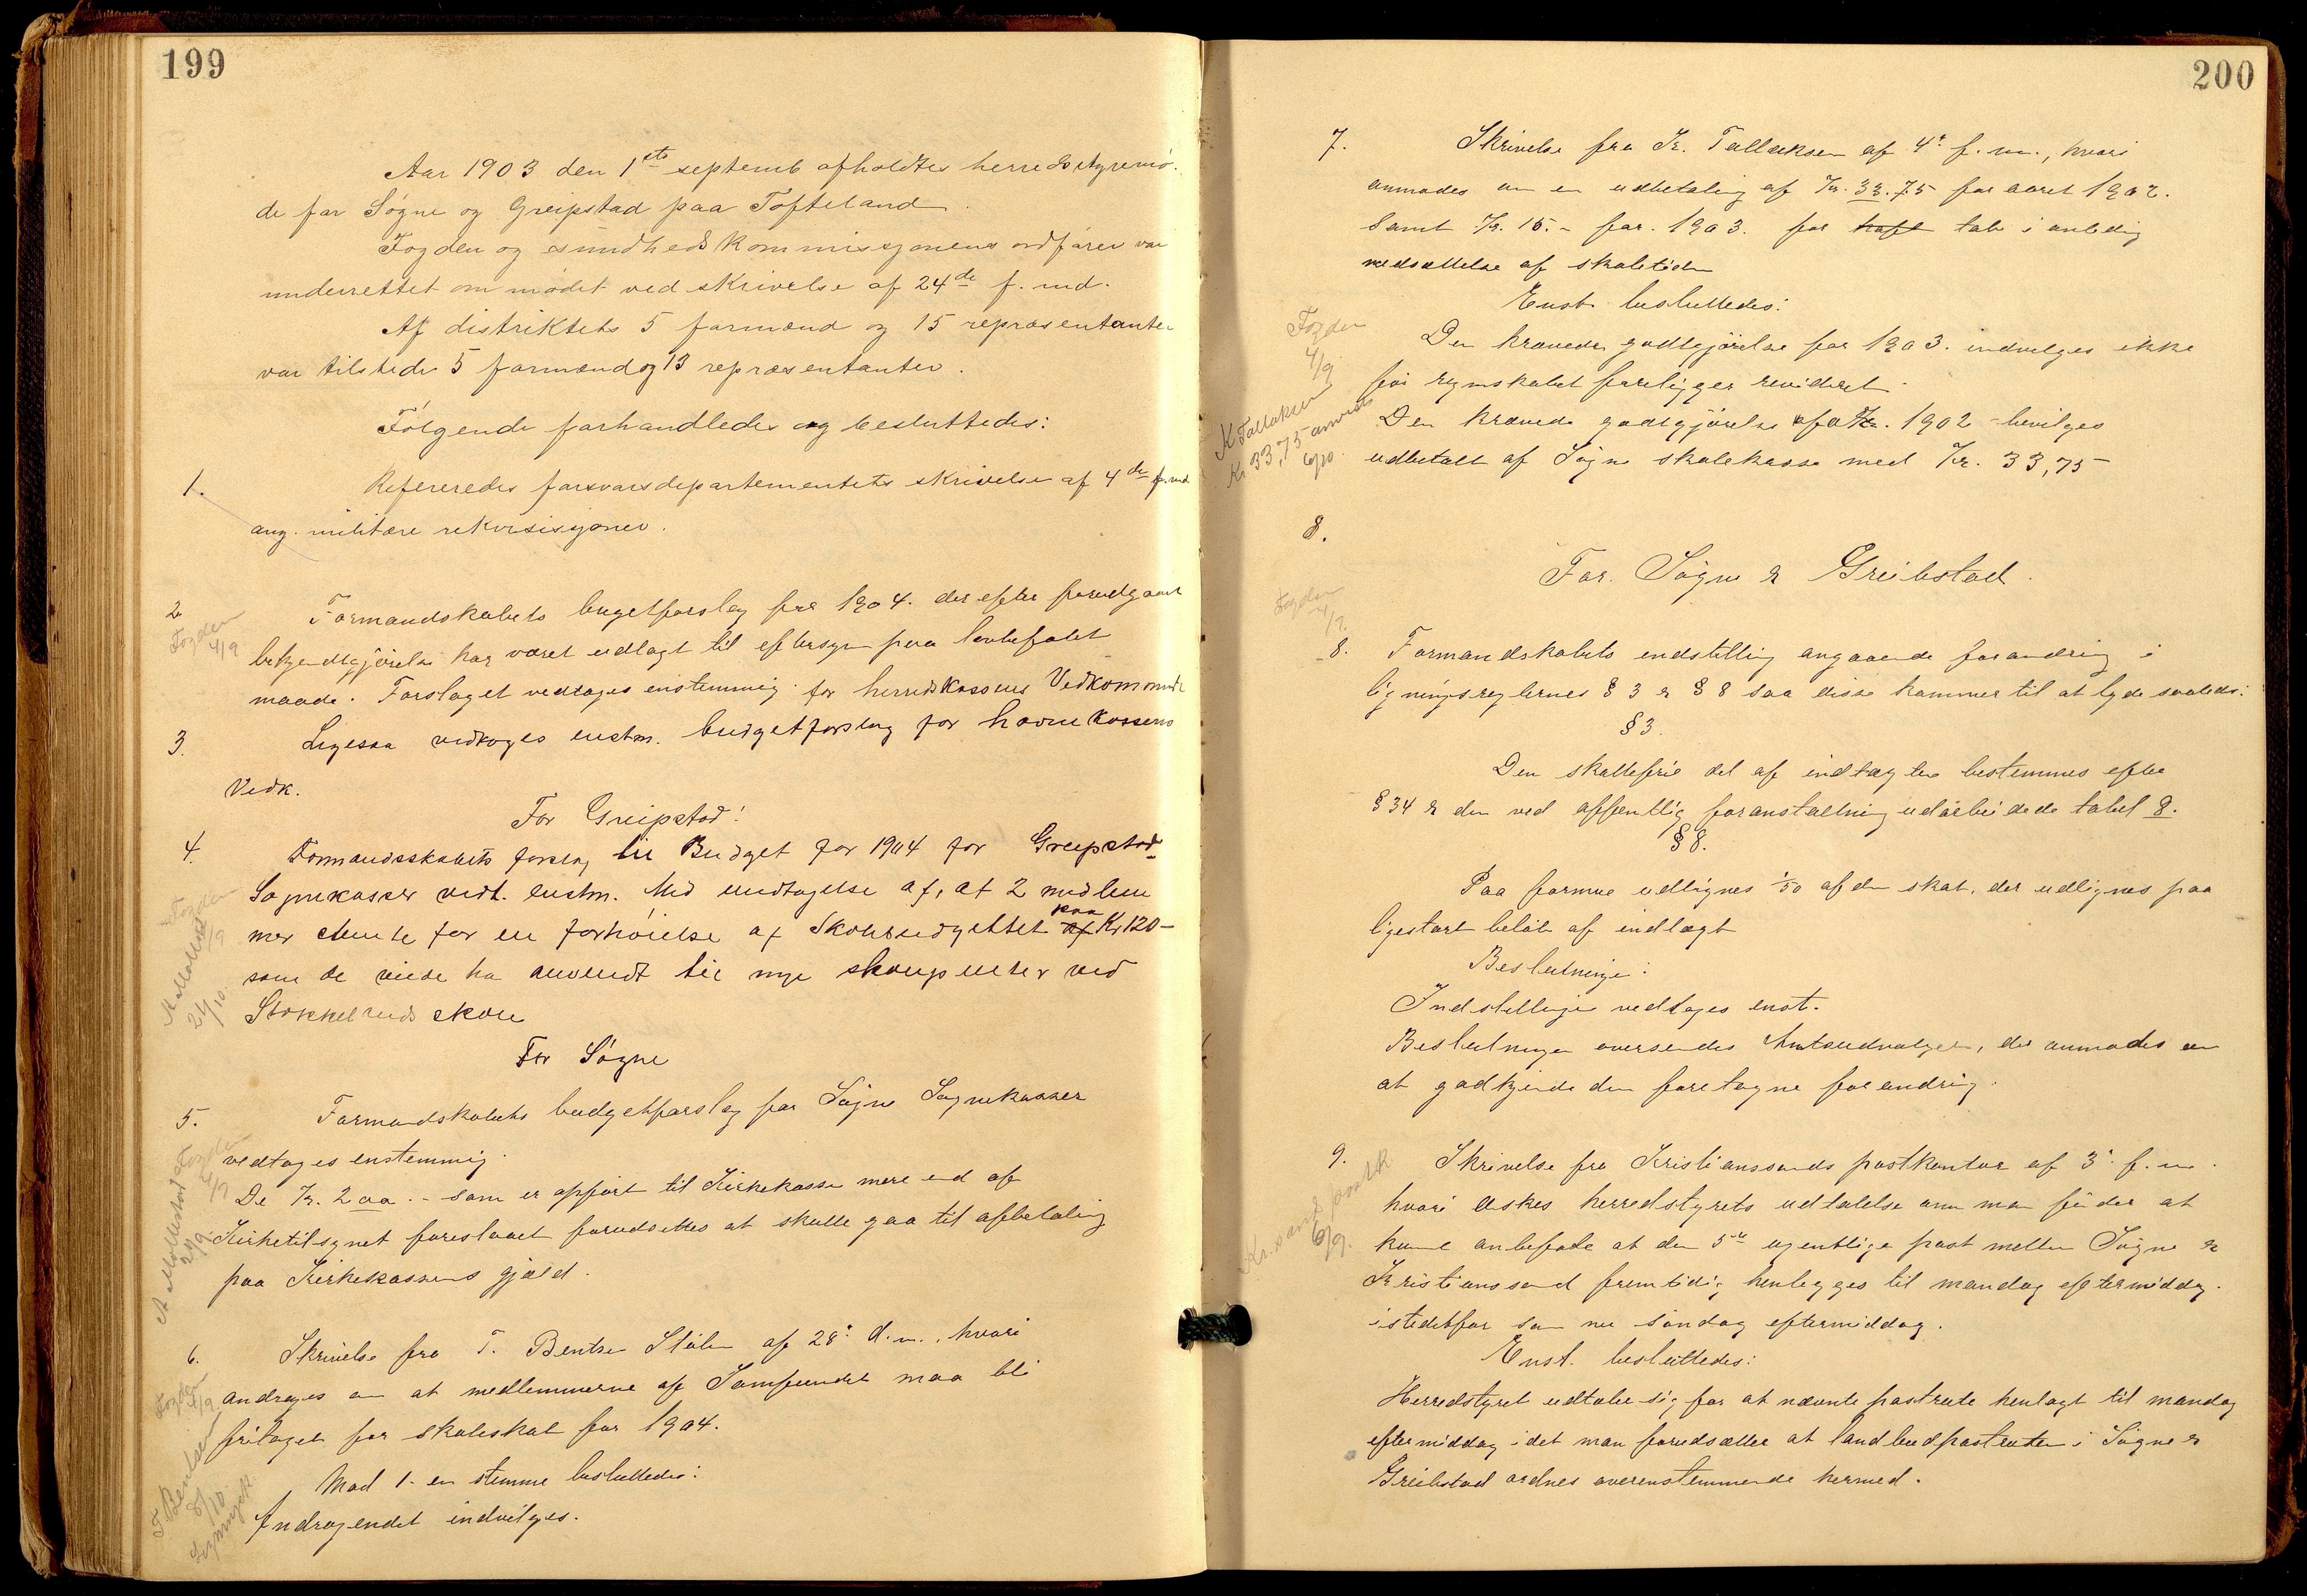 199
Aar 1903 den 1ste septemb afholdtes herredsstyremø-
de for Søgne og Greipstad paa Tofteland.
Fogden og sundhedskommissjonens ordfører var
underrettet om mødet ved skrivelse af 24de f. md.
Af distriktets 5 formænd og 15 repræsentanter
var tilstede 5 formænd og 13 repræsentanter.
Følgende forhandledes og besluttedes:
1. Refereredes forsvarsdepartementets skrivelse af 4de f. md
ang. militære rekvisisjoner.
2 Formandskabets bugetforslag for 1904. der efter forudgaaet
Fogden 4/9
bekjendtgjørelse har været udlagt til eftersyn paa lovbefalet
maade. Forslaget vedtages enstemmig for herredskassens Vedkommende
3. Ligesaa vedtoges enstm. budgetforslag for havnekassens
Vedk.
For Greipstad!
4. Formandsskabets forslag til Budget for 1904 for Greipstad
Sognekasser vedt. enstm. Med undtagelse af, at 2 medlem
Fogden
mer stemte for en forhøielse af Skolebudgettet af paa Kr 120-
som de vilde ha anvendt til nye skolepulter ved
21/10.
Stokkelands skole
For Søgne
5. Formandskabets budgetforslag for Søgne Sognekasser
Fogden
vedtages enstemmig.
De Kr. 200.- som er opført til Kirkekassen mere end af
Kirketilsynet foreslaaet forudsettes at skulle gaa til afbetaling
paa Kirkekassens gjæld.
6. Skrivelse fra T. Bentsen Stølen af 28. d.m., hvori
Fogden 4/9
andrages om at medlemmerne af Samfundet maa bli
fritaget for skoleskat for 1904.
Mod 1- en stemme besluttedes:
T Bentsen 8/10.
Andragendet indvilges.
200
7. Skrivelse fra Kr. Tallaksen af 4. f. m., hvori
anmodes om en udbetaling af Kr. 33.75 for aaret 1902.
Samt Kr. 15.- for 1903. for havt tab i anledning
nedsættelse af skoletiden
Enst. besluttedes:
Fogden 4/9
Den krævede godtgjørelse for 1903. indvilges ikke
før regnskabet foreligger revideret.
K Tallaksen Kr 33,75 anvist
Den krævede godtgjørelse for 1902 bevilges
udbetalt af Søgne skolekasse med Kr. 33,75
8.
For. Søgne & Greibstad.
Fogden 4/9.
8. Formandskabets indstilling angaaende forandring i
ligningsreglernes § 3 & § 8 saa disse kommer til at lyde saaledes:
§ 3.
Den skattefrie del af indtægten bestemmes efter
§ 34 & den ved offentlig foranstaltning udarbeidede tabel 8.
§ 8.
Paa formue udlignes 1/50 af den skat, der udlignes paa
ligestort beløb af indtægt
Beslutning:
Indstillingen vedtages enst.
Beslutningen oversendes Amtsudvalget, der anmodes om
at godkjende den foretagne forandring.
9. Skrivelse fra Kristianssands postkontor af 3. f. m.
hvori æskes herredstyrets udtalelse om man finder at
Kr.sand postk 6/9.
kunne anbefale at den 5te ugentlige post mellem Søgne &
Kristianssand fremtidig henlegges til mandag eftermiddag.
istedetfor som nu søndag eftermiddag.
Enst. besluttedes:
Herredstyret udtaler sig for at nævnte postrute henlagt til mandag
eftermiddag idet man forudsætter at landbudpostruten i Søgne &
Greibstad ordnes overenstemmende hermed.